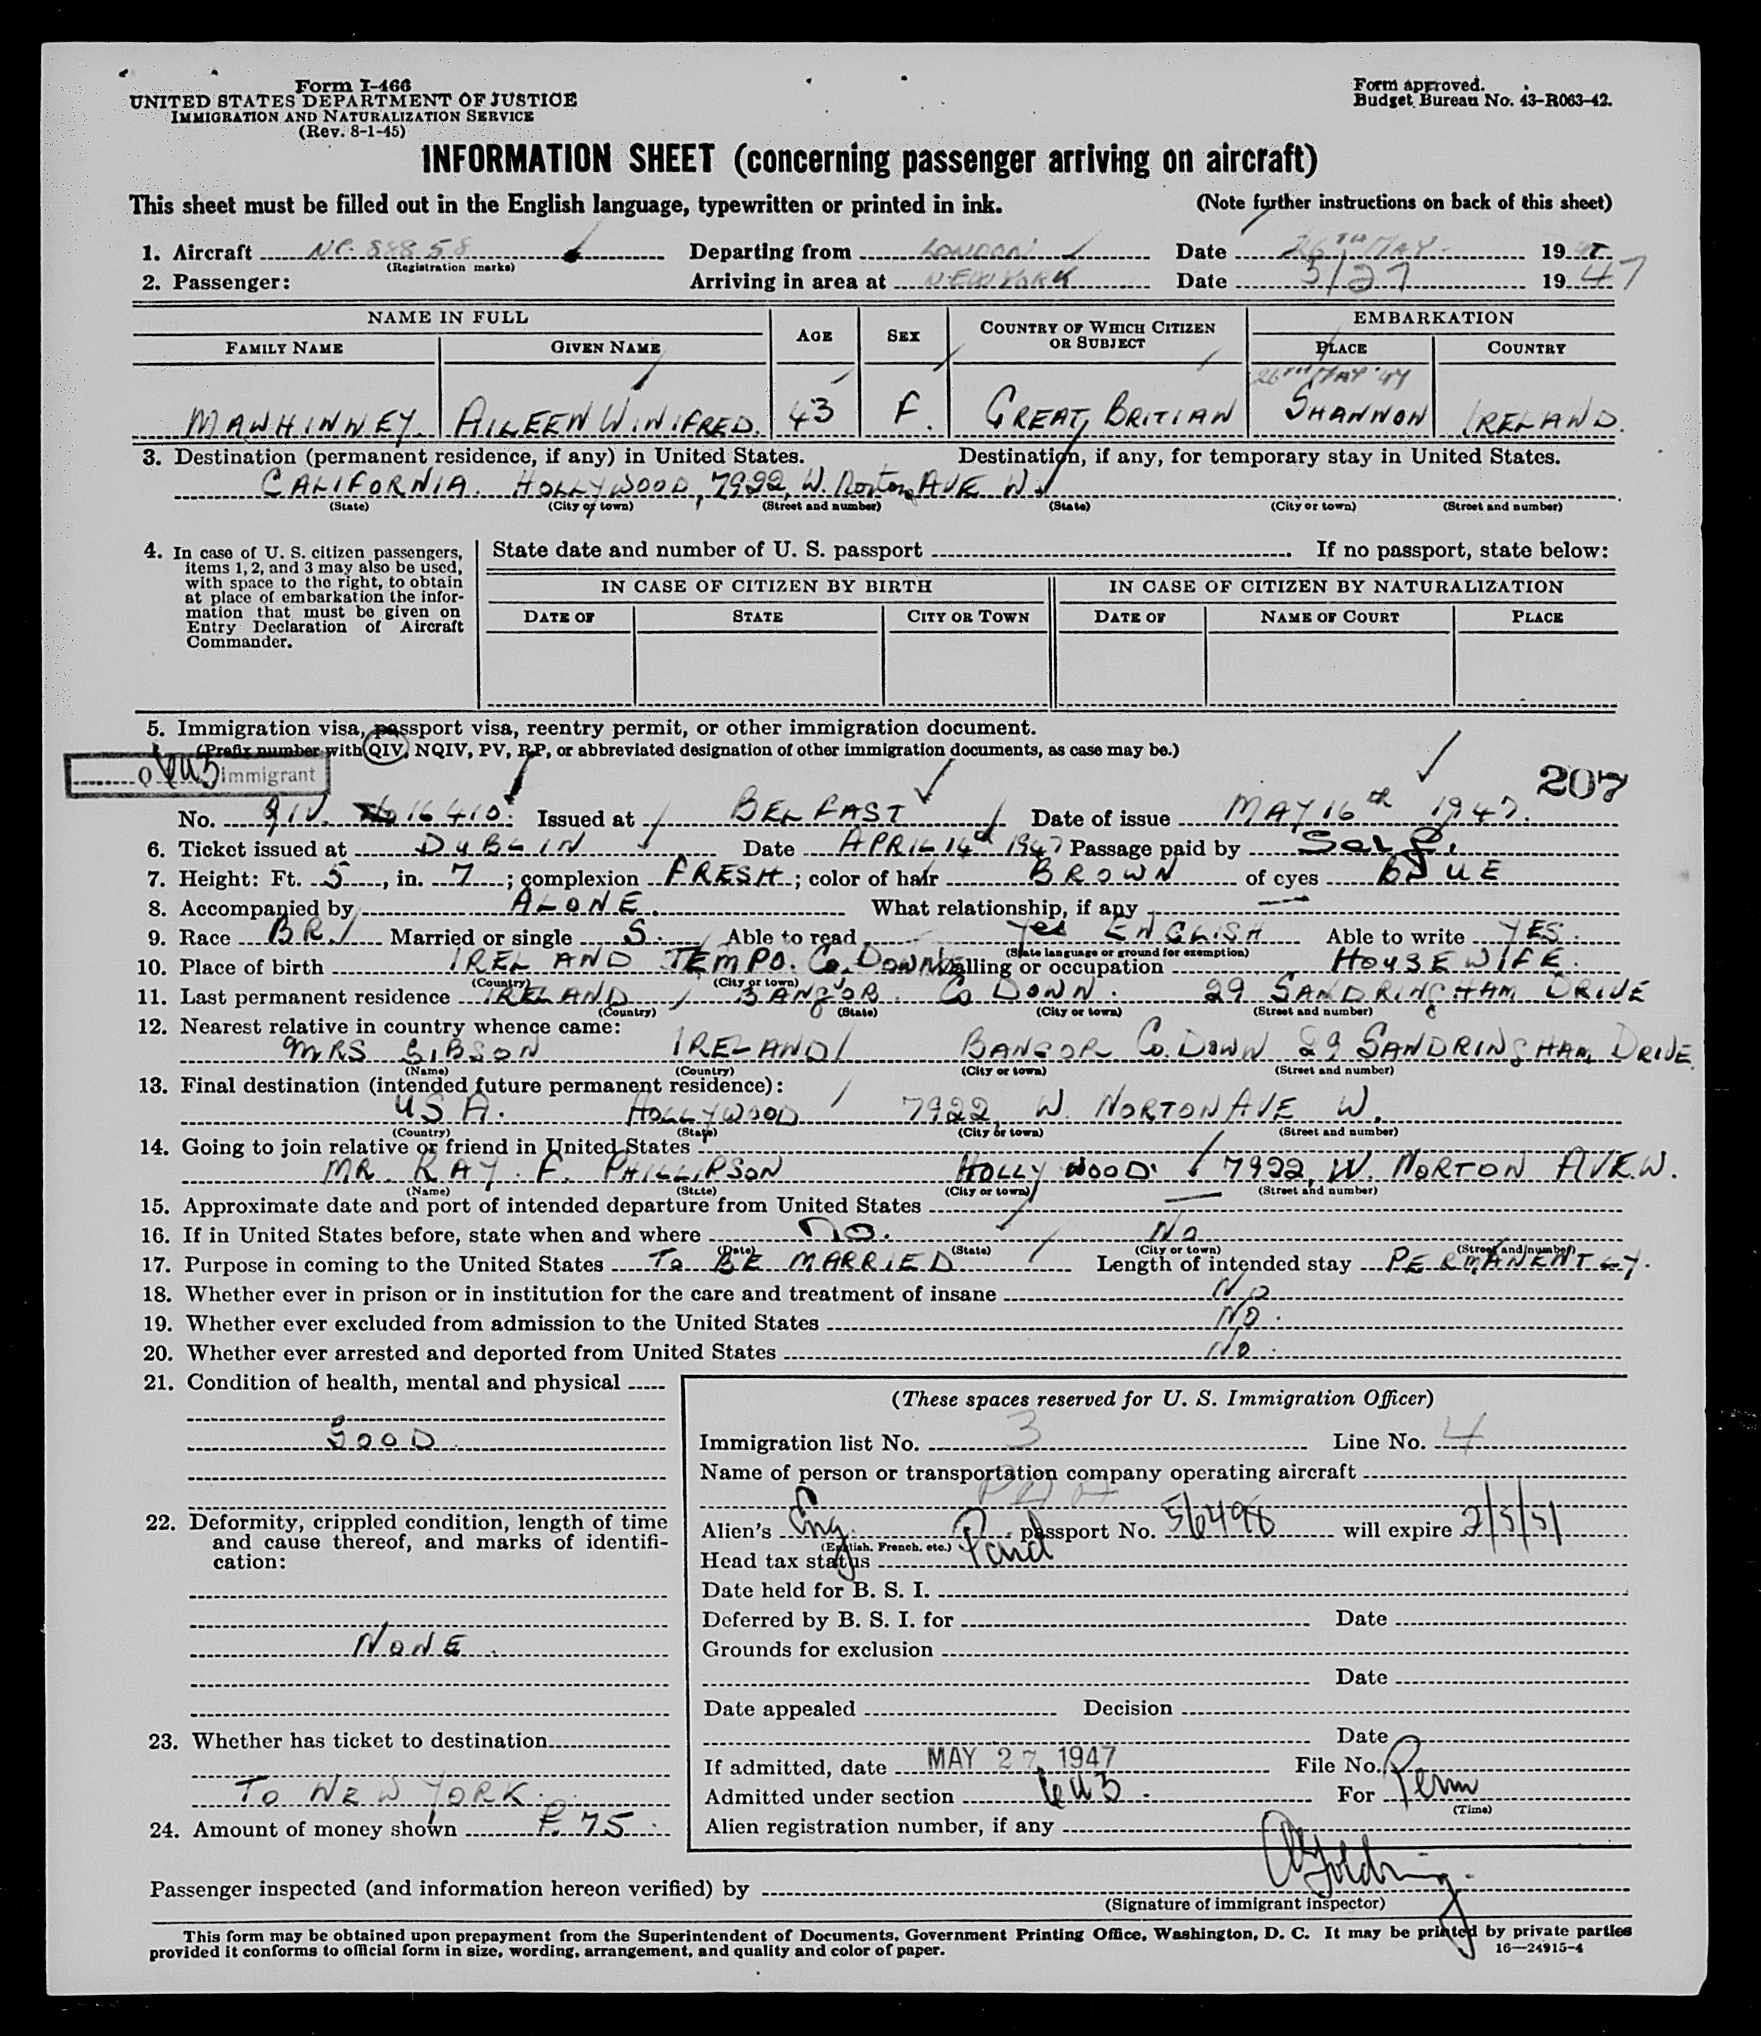 Form I-466
UNITED STATES DEPARTMENT OF JUSTICE
IMMIGRATION AND NATURALIZATION SERVICE
(Rev. 8-1-45)
Form approved.
Budget Bureau No. 43-R063-42.
INFORMATION SHEET (concerning passenger arriving on aircraft)
This sheet must be filled out in the English language, typewritten or printed in ink. (Note further instructions on back of this sheet)
1. Aircraft NC. 88858 Departing from LONDON Date 26TH MAY 1947
(Registration marks)
2. Passenger: Arriving in area at NEW YORK Date 5/27 1947
NAME IN FULL AGE SEX COUNTRY OF WHICH CITIZEN OR SUBJECT EMBARKATION
FAMILY NAME GIVEN NAME PLACE COUNTRY
26TH MAY '47
MAWHINNEY. AILEEN WINIFRED. 43 F. GREAT BRITIAN SHANNON IRELAND.
3. Destination (permanent residence, if any) in United States. Destination, if any, for temporary stay in United States.
CALIFORNIA. HOLLYWOOD, 7922, W. Norton AVE W.
(State) (City or town) (Street and number) (State) (City or town) (Street and number)
4. In case of U. S. citizen passengers, items 1, 2, and 3 may also be used, with space to the right, to obtain at place of embarkation the information that must be given on Entry Declaration of Aircraft Commander.
State date and number of U. S. passport If no passport, state below:
IN CASE OF CITIZEN BY BIRTH IN CASE OF CITIZEN BY NATURALIZATION
DATE OF STATE CITY OR TOWN DATE OF NAME OF COURT PLACE
5. Immigration visa, passport visa, reentry permit, or other immigration document.
(Prefix number with QIV, NQIV, PV, RP, or abbreviated designation of other immigration documents, as case may be.)
Q 6a3 immigrant
207
No. QIV. 16410. Issued at BELFAST Date of issue MAY 16th 1947.
6. Ticket issued at DUBLIN Date APRIL 14th 1947 Passage paid by SELF.
7. Height: Ft. 5, in. 7; complexion FRESH; color of hair BROWN of eyes BLUE
8. Accompanied by ALONE. What relationship, if any —
9. Race BR. Married or single S. Able to read yes ENGLISH Able to write YES.
(State language or ground for exemption)
10. Place of birth IRELAND TEMPO. Co. DOWN Calling or occupation HOUSEWIFE.
(Country) (City or town)
11. Last permanent residence IRELAND BANGOR. Co DOWN. 29 SANDRINGHAM DRIVE
(Country) (State) (City or town) (Street and number)
12. Nearest relative in country whence came:
MRS GIBSON IRELAND BANGOR Co. DOWN 29 SANDRINGHAM DRIVE.
(Name) (Country) (City or town) (Street and number)
13. Final destination (intended future permanent residence):
USA. HOLLYWOOD 7922 W. NORTON AVE W.
(Country) (State) (City or town) (Street and number)
14. Going to join relative or friend in United States
MR. RAY. F. PHILLIPSON HOLLYWOOD. 7922, W. NORTON AVE.W.
(Name) (State) (City or town) (Street and number)
15. Approximate date and port of intended departure from United States —
16. If in United States before, state when and where NO. No
(Date) (State) (City or town) (Street and number)
17. Purpose in coming to the United States To BE MARRIED Length of intended stay PERMANENTLY.
18. Whether ever in prison or in institution for the care and treatment of insane No
19. Whether ever excluded from admission to the United States NO.
20. Whether ever arrested and deported from United States No.
21. Condition of health, mental and physical
GOOD.
22. Deformity, crippled condition, length of time and cause thereof, and marks of identification:
NONE.
23. Whether has ticket to destination
TO NEW YORK.
24. Amount of money shown £.75.
(These spaces reserved for U. S. Immigration Officer)
Immigration list No. 3 Line No. 4
Name of person or transportation company operating aircraft
PAA
Alien's Eng. passport No. 56498 will expire 2/5/51
(English, French, etc.)
Head tax status Paid
Date held for B. S. I.
Deferred by B. S. I. for Date
Grounds for exclusion
Date
Date appealed Decision
Date
If admitted, date MAY 27 1947 File No.
Admitted under section 6a3. For Perm
(Time)
Alien registration number, if any
Passenger inspected (and information hereon verified) by
(Signature of immigrant inspector)
This form may be obtained upon prepayment from the Superintendent of Documents, Government Printing Office, Washington, D. C. It may be printed by private parties
provided it conforms to official form in size, wording, arrangement, and quality and color of paper. 16—24915-4